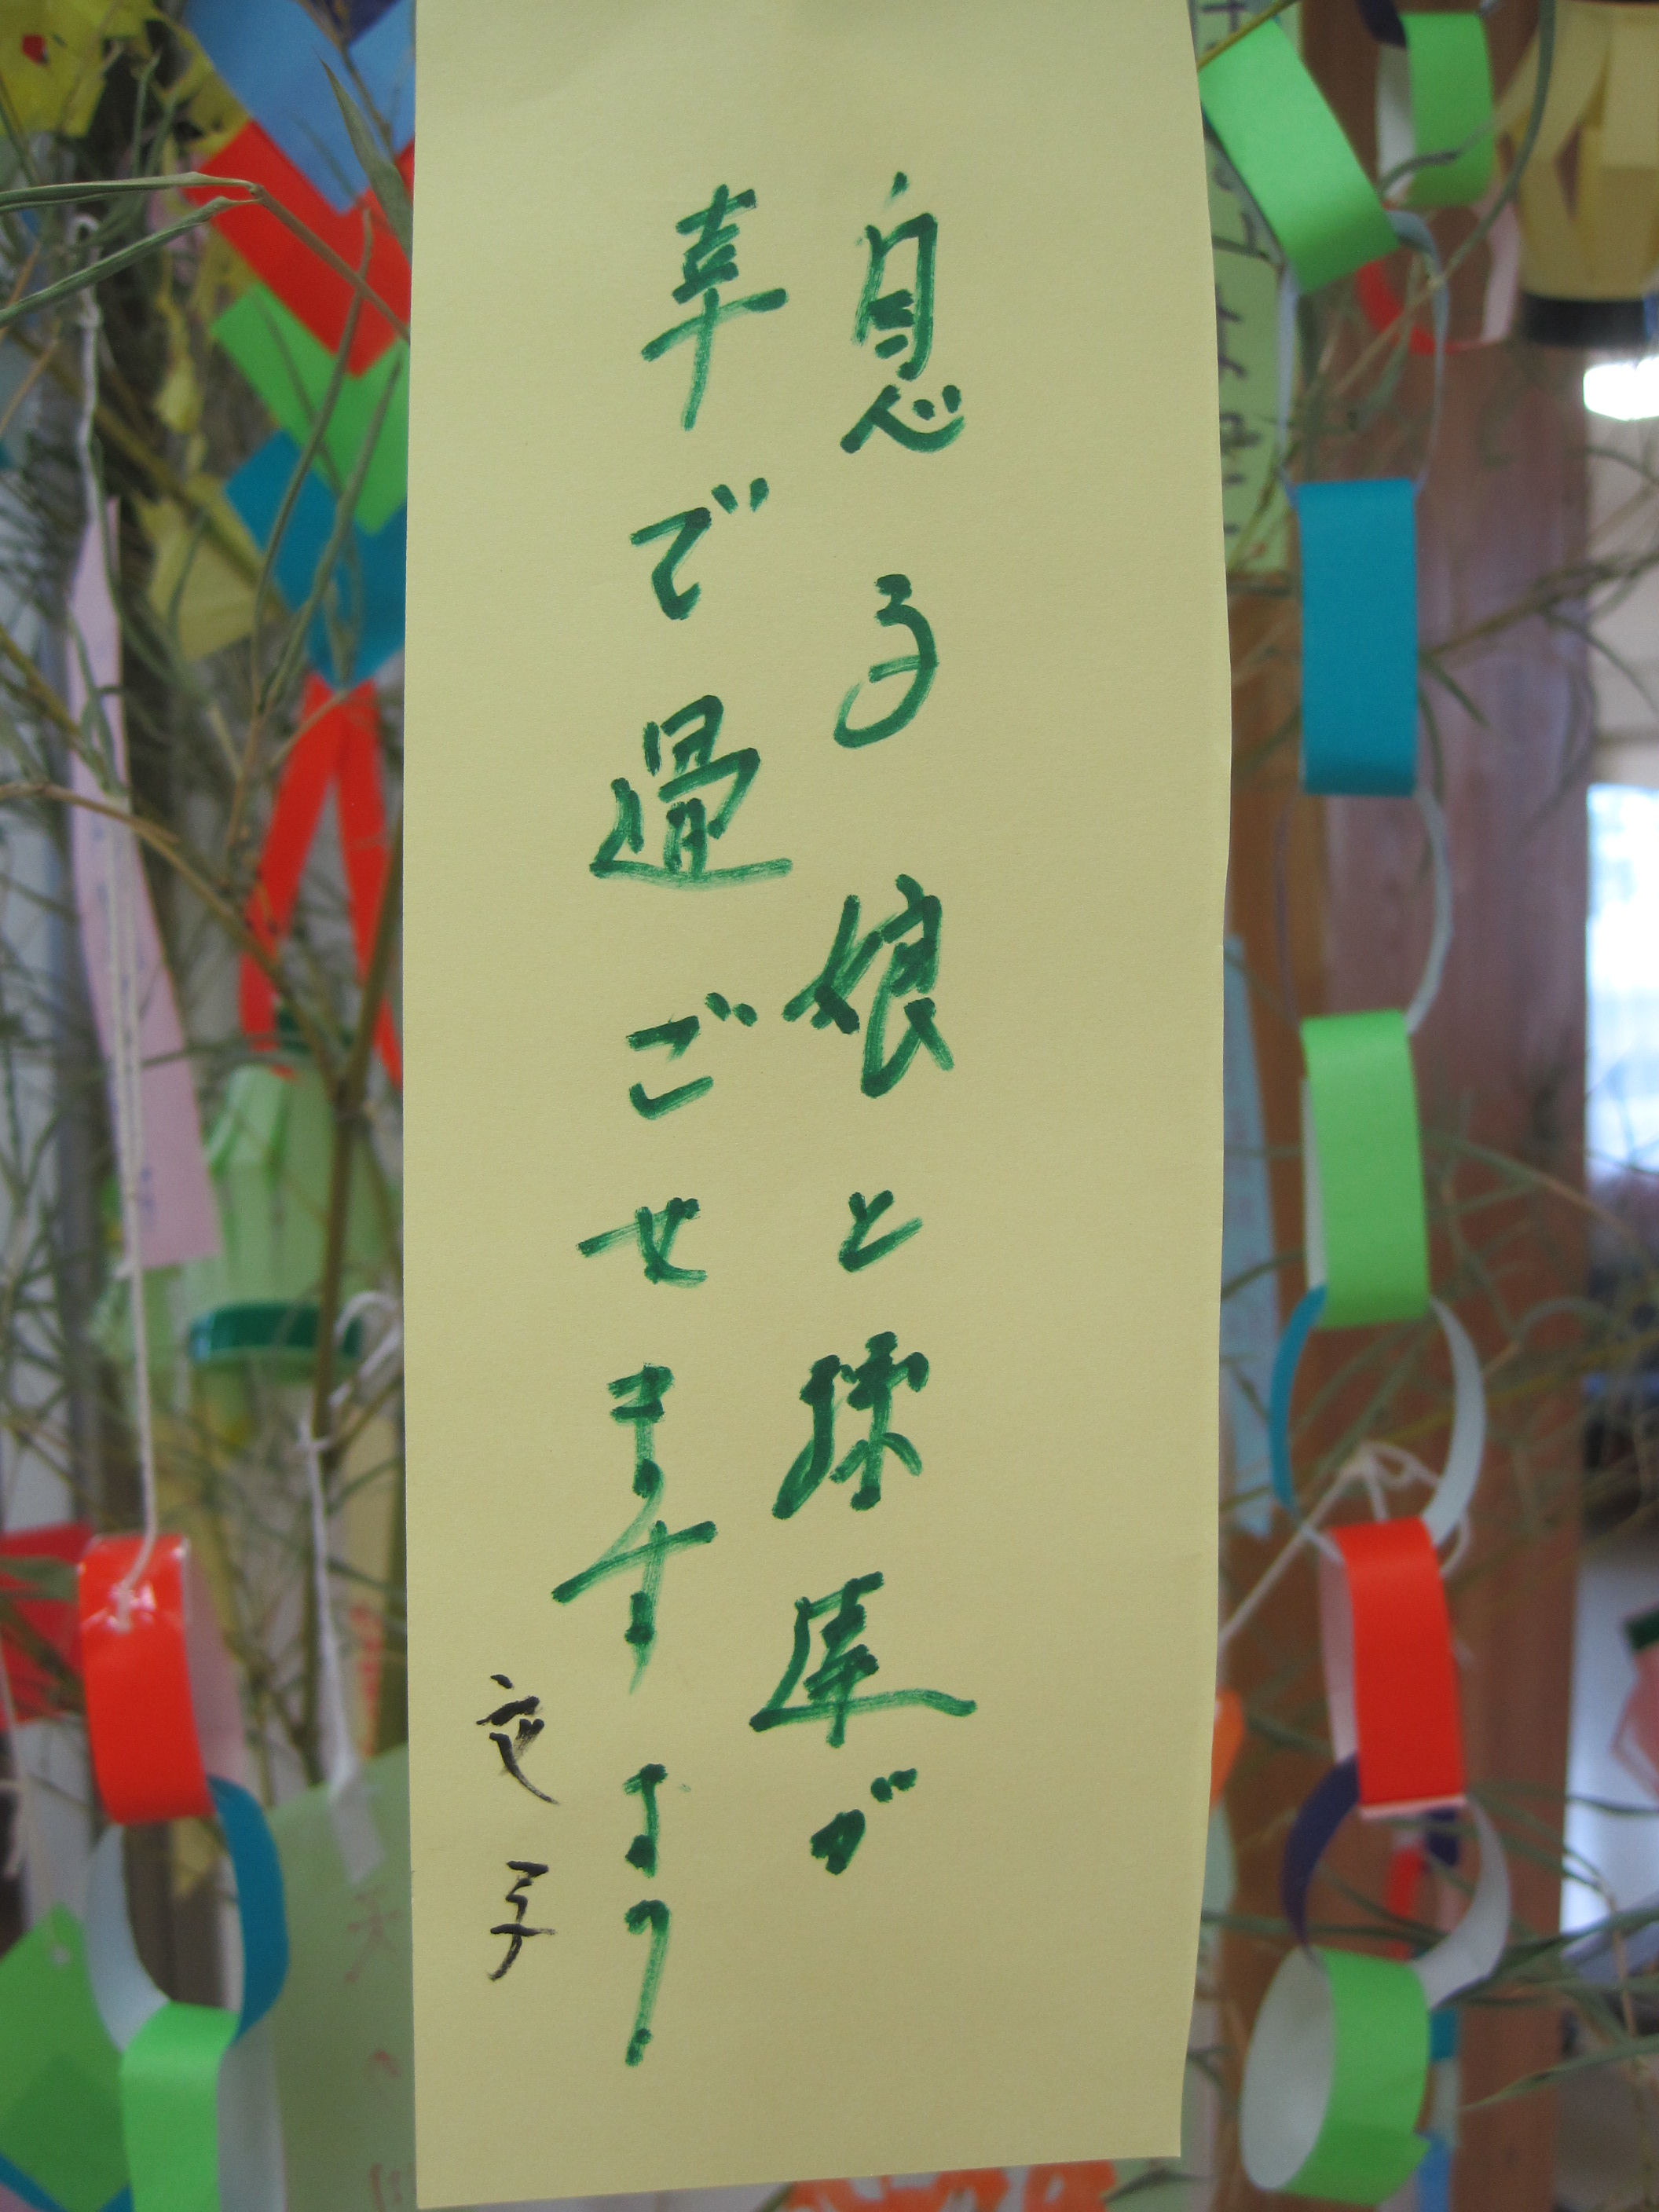 息子娘と孫達が
幸で過ごせますよう